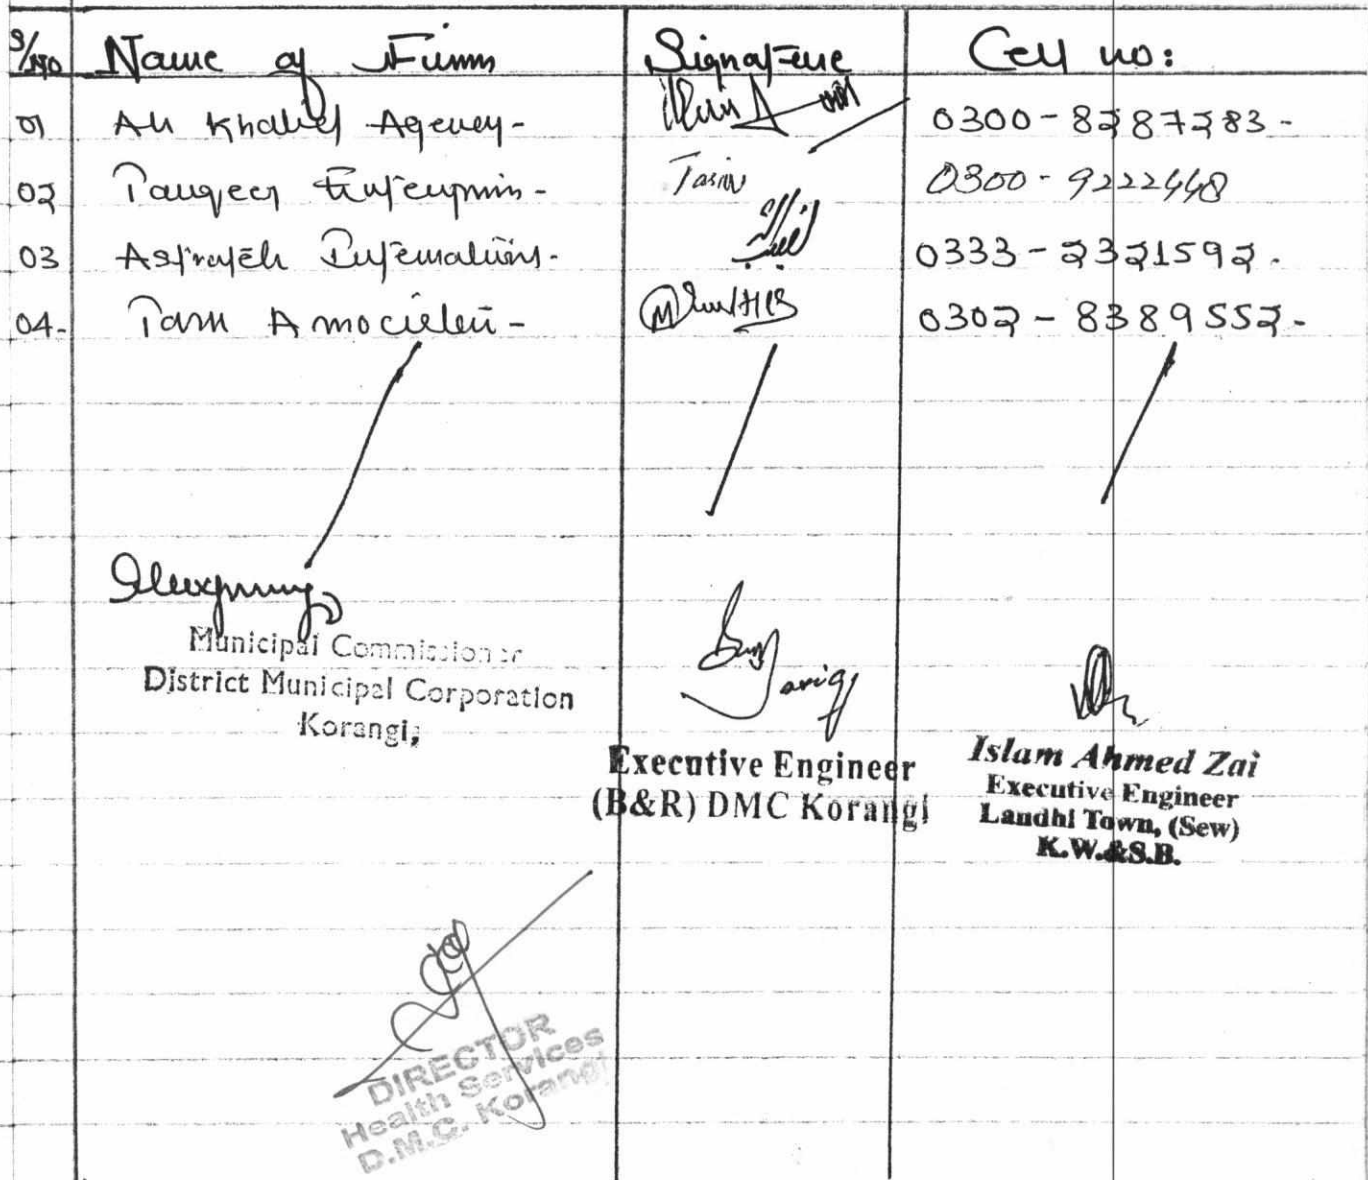 S/No Name of Firm Signature Cell no:
01 Al Khalid Agency - 0300-8287283-
02 Tauqeer Enterprises - Tariq 0300-9222448
03 International - 0333-2321592.
04- Associates - 0302-8389552-
Municipal Commissioner
District Municipal Corporation
Korangi,
Tariq
Executive Engineer
(B&R) DMC Korangi
Islam Ahmed Zai
Executive Engineer
Landhi Town, (Sew)
K.W.&S.B.
DIRECTOR
Health Services
D.M.C. Korangi